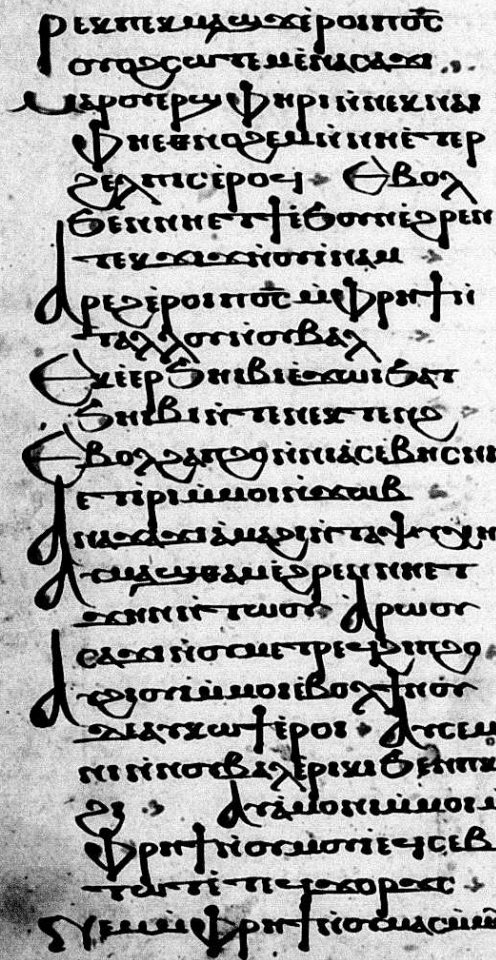 ⲣⲉⲕⲡⲉⲕⲙⲁϣϫⲉⲣⲟⲓⲡⲟ̅ⲥ̅
ⲟⲩⲟϩⲥⲱⲧⲉⲙⲉⲛⲁⲥⲁϫⲓ
ⲙⲁⲣⲟⲩⲉⲣϣⲫⲏⲣⲓⲛ̀ⲛⲉⲕⲛⲁⲓ
ⲫⲏⲉⲑⲛⲟϩⲉⲙⲛ̀ⲛⲏⲉⲧⲉⲣ
ϩⲉⲗⲡⲓⲥⲉⲣⲟϥ ⲉⲃⲟⲗ
ϧⲉⲛⲛⲏⲉⲧϯⲉϧⲟⲩⲛⲉϩⲣⲉⲛ
ⲧⲉⲕϫⲓϫⲛ̀ⲟⲩⲓⲛⲁⲙ
ⲁⲣⲉϩⲉⲣⲟⲓⲡⲟ̅ⲥ̅ⲙ̀ⲫⲣⲏϯⲛ̀
ⲧⲁⲗⲗⲟⲩⲛ̀ⲟⲩⲃⲁⲗ
ⲉⲕⲉ̀ⲉⲣϧⲏⲓⲃⲓⲉ̀ϫⲱⲓϧⲁⲧ
ϧⲏⲓⲃⲓⲛ̀ⲧⲉⲛⲉⲕⲧⲉⲛϩ
ⲉⲃⲟⲗϩⲁⲡϩⲟⲛ̀ⲛⲓⲁⲥⲉⲃⲏⲥⲛⲏ
ⲉⲧⲓⲣⲓⲙ̀ⲙⲟⲓⲛ̀ϫⲱⲃ
ⲁⲛⲁϫⲁϫⲓⲁ̀ⲙⲁϩⲓⲛ̀ⲧⲁⲯⲩⲭⲏ
ⲁⲩⲙⲁϣⲑⲁⲙⲉ̀ϩⲣⲉⲛⲛⲏⲉⲧ
ⲕⲏⲛⲓⲛ̀ⲧⲱⲟⲩ ⲁⲣⲱⲟⲩ
ⲥⲁϫⲓⲛ̀ⲟⲩⲙⲉⲧⲣⲉϥϭⲓⲡϩⲟ
ⲁⲩϩⲓⲟⲩⲓⲙ̀ⲙⲟⲓⲉ̀ⲃⲟⲗϯⲛⲟⲩ
ϫⲉⲁⲩⲕⲱϯⲉ̀ⲣⲟⲓ ⲁⲩⲥⲉⲙ
ⲛⲓⲛ̀ⲛⲟⲩⲃⲁⲗⲉ̀ⲣⲓⲕⲓϧⲉⲛⲡⲕⲁ
ϩⲓ ⲁⲩⲁⲙⲟⲛⲓⲙ̀ⲙⲟⲓⲙ̀
ⲫⲣⲏϯⲛ̀ⲟⲩⲙⲟⲩⲓⲉϥⲥⲉⲃ
ⲧⲱⲧⲉ̀ⲡⲉϥϫⲟⲣϫⲥ
ⲛⲉⲙⲙ̀ⲫⲣⲏϯⲛ̀ⲟⲩⲙⲁⲥⲙ̀ⲙ